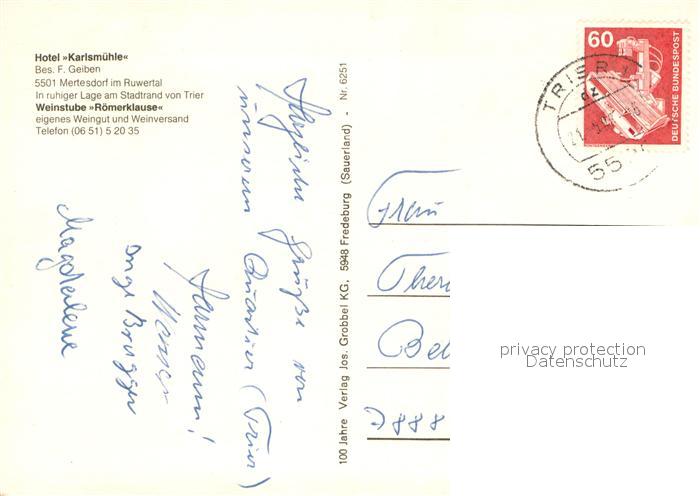 Hotel »Karlsmühle«
Bes. F. Geiben
5501 Mertesdorf im Ruwertal
In ruhiger Lage am Stadtrand von Trier
Weinstube »Römerklause«
eigenes Weingut und Weinversand
Telefon (06 51) 5 20 35
Herzliche Grüße von
unserem Quartier (Trier)
Hermann!
Inge Brugger
Magdalene
100 Jahre Verlag Jos. Grobbel KG, 5948 Fredeburg (Sauerland) - Nr. 6251
60
DEUTSCHE BUNDESPOST
TRIER
55
Frau
Ther
Be
D 888
privacy protection
Datenschutz